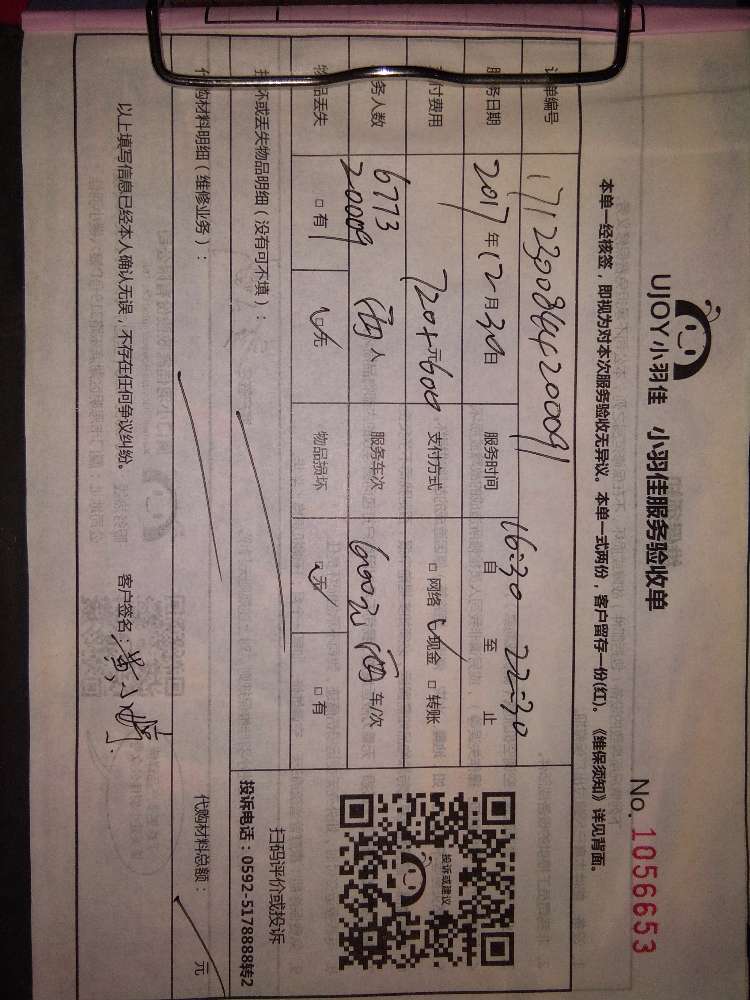 UJOY小羽佳 小羽佳服务验收单
No. 1056653
本单一经核签，即视为对本次服务验收无异议。本单一式两份，客户留存一份(红)。《维保须知》详见背面。
订单编号
服务日期 2017 年 12 月 30 日 服务时间 16:30 自 至 22:30 止
支付费用 720+600 元 支付方式 □ 网络 ☑ 现金 □ 转账
服务人数 6773 20009 两 人 服务车次 600元 两 车/次
物品丢失 □ 有 ☑ 无 物品损坏 ☑ 无 □ 有
损坏或丢失物品明细（没有可不填）：
代购材料明细（维修业务）： 代购材料总额： 元
以上填写信息已经本人确认无误，不存在任何争议纠纷。 客户签名：黄小婷
投诉或建议
扫码评价或投诉
投诉电话：0592-5178888转2